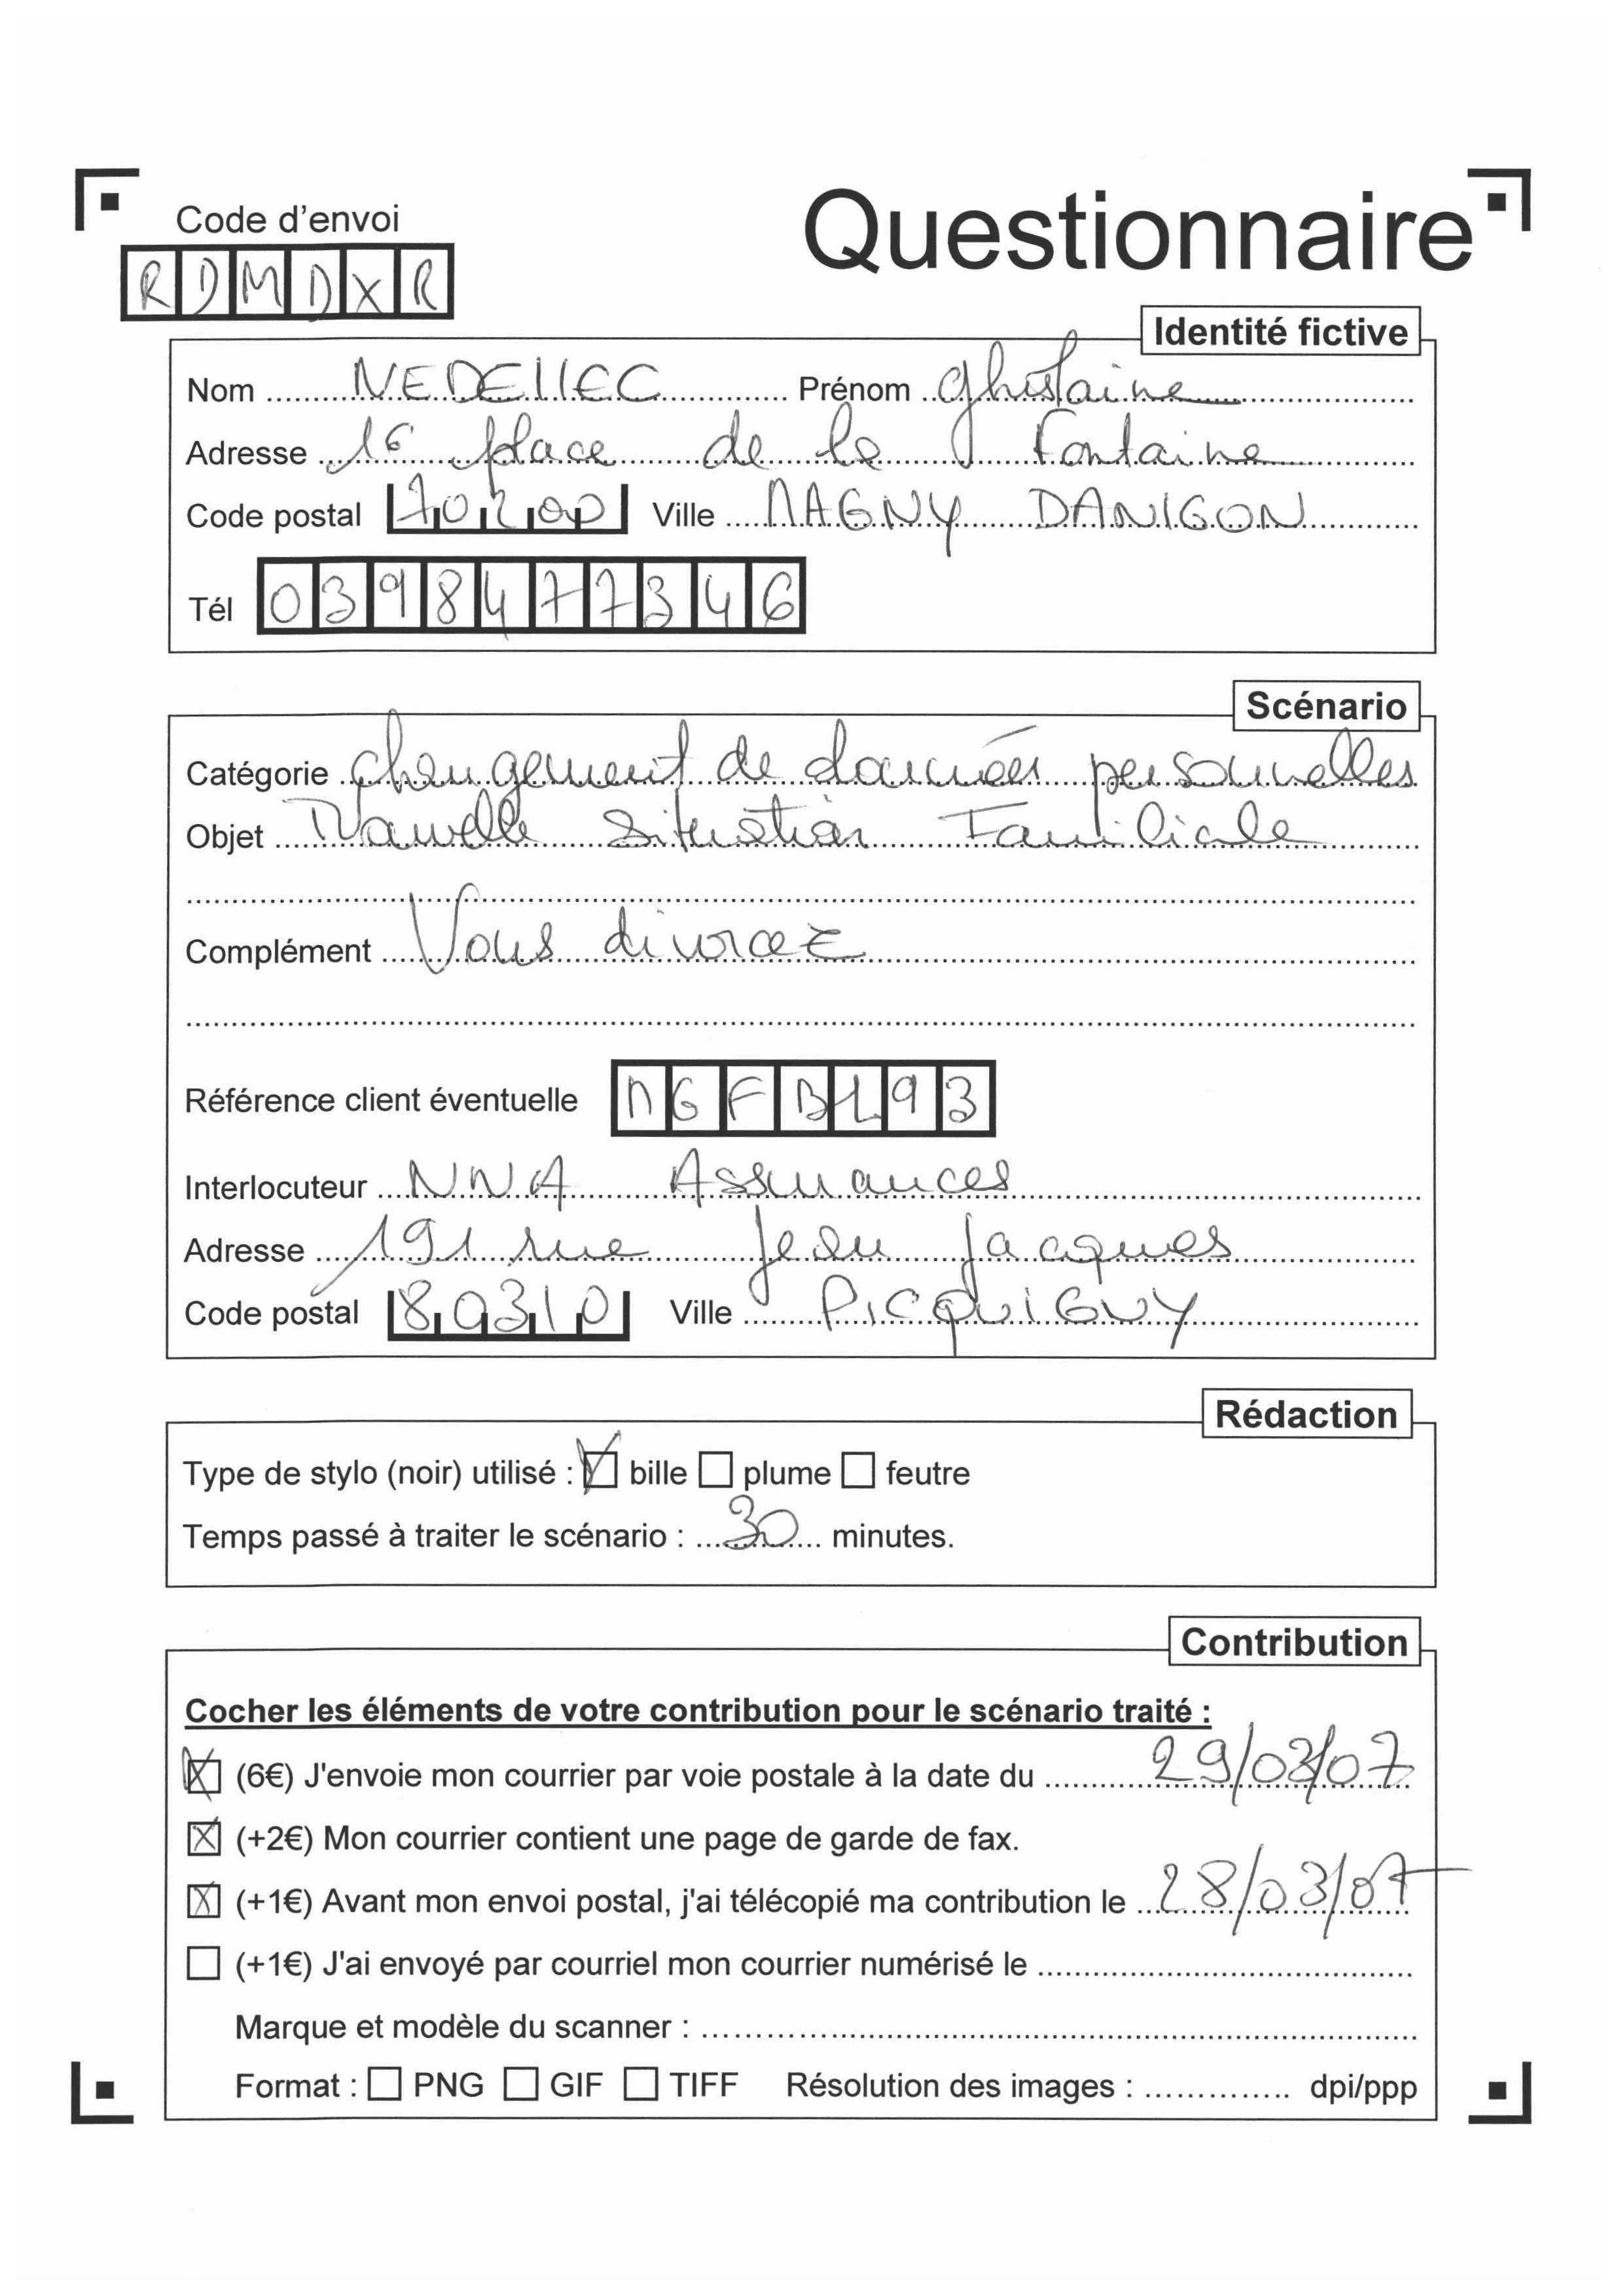 Code d'envoi
Questionnaire
RDMDXR
Identité fictive
Nom NEDELLEC Prénom Ghislaine
Adresse 16 place de la Fontaine
Code postal 70200 Ville MAGNY DANIGON
Tél 0398477346
Scénario
Catégorie changement de données personnelles
Objet Nouvelle situation Familiale
Complément Vous divorcez
Référence client éventuelle NGFBL93
Interlocuteur NNA Assurances
Adresse 191 rue Jean Jacques
Code postal 80310 Ville PICQUIGNY
Rédaction
Type de stylo (noir) utilisé : bille plume feutre
Temps passé à traiter le scénario : 30 minutes.
Contribution
Cocher les éléments de votre contribution pour le scénario traité :
(6€) J'envoie mon courrier par voie postale à la date du 29/03/07
(+2€) Mon courrier contient une page de garde de fax.
(+1€) Avant mon envoi postal, j'ai télécopié ma contribution le 28/03/07
(+1€) J'ai envoyé par courriel mon courrier numérisé le
Marque et modèle du scanner :
Format : PNG GIF TIFF Résolution des images : dpi/ppp